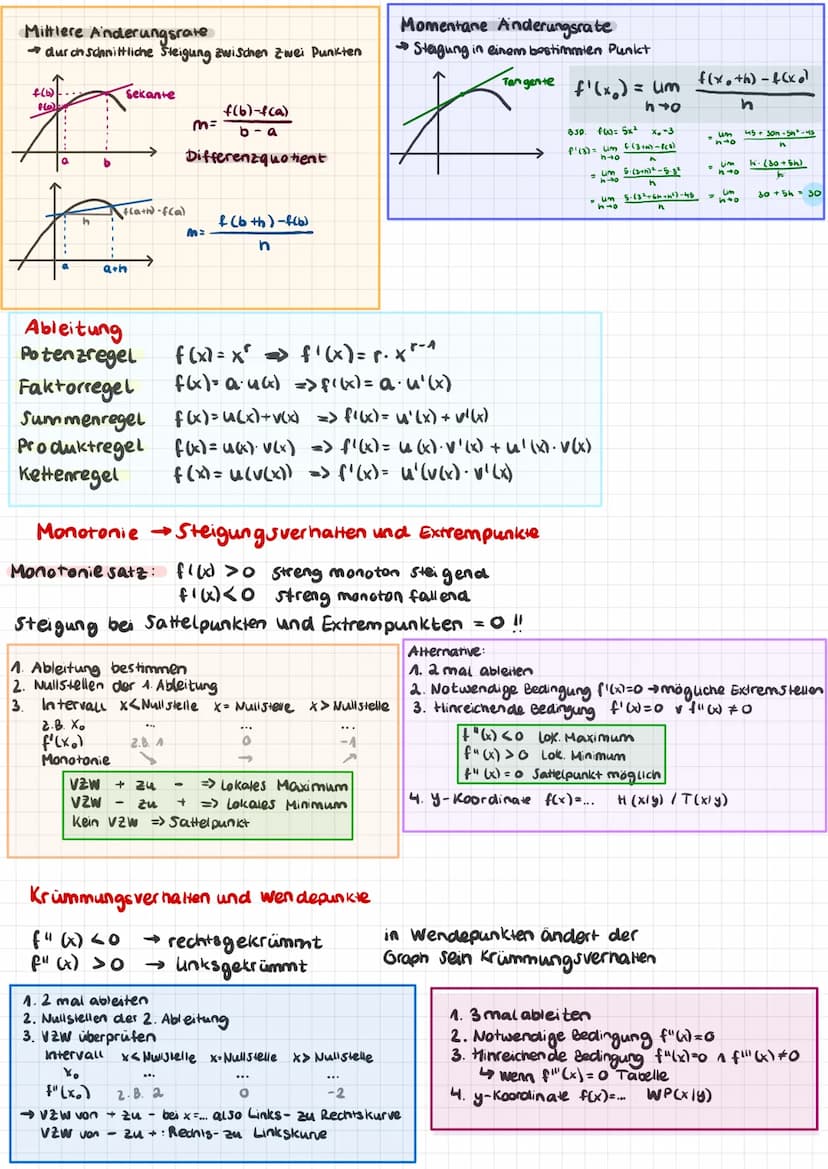 Mittlere Änderungsrate
→ durchschnittliche Steigung zwischen zwei Punkten
f(b)
f(a)
Sekante
a b
m= f(b)-f(a) / b - a
Differenzquotient
f(a+h)-f(a)
h
a a+h
m= f(b+h)-f(b) / h
Momentane Änderungsrate
→ Steigung in einem bestimmten Punkt
Tangente
f'(x₀) = lim h→0 f(x₀+h)-f(x₀) / h
BSP. f(x)= 5x² x₀=3
f'(3)= lim h→0 f(3+h)-f(3) / h
= lim h→0 5·(3+h)²-5·3² / h
= lim h→0 5·(3²+6h+h²)-45 / h
= lim h→0 45+30h-5h²-45 / h
= lim h→0 h·(30+5h) / h
= lim h→0 30+5h = 30
Ableitung
Potenzregel f(x)= x^r => f'(x)= r· x^r-1
Faktorregel f(x)= a·u(x) => f'(x)= a·u'(x)
Summenregel f(x)=u(x)+v(x) => f'(x)= u'(x)+v'(x)
Produktregel f(x)= u(x)·v(x) => f'(x)= u(x)·v'(x)+u'(x)·v(x)
Kettenregel f(x)= u(v(x)) => f'(x)= u'(v(x)·v'(x)
Monotonie → Steigungsverhalten und Extrempunkte
Monotoniesatz: f'(x) >0 streng monoton steigend
f'(x)<0 streng monoton fallend
Steigung bei Sattelpunkten und Extrempunkten = 0 !!
1. Ableitung bestimmen
2. Nullstellen der 1. Ableitung
3. Intervall x<Nullstelle x= Nullstelle x> Nullstelle
z.B. x₀ ... ...
f'(x₀) z.B. 1 0 -1
Monotonie ↘ → ↗
VZW + zu - => Lokales Maximum
VZW - zu + => Lokales Minimum
Kein VZW => Sattelpunkt
Alternative:
1. 2 mal ableiten
2. Notwendige Bedingung f'(x)=0 →mögliche Extremstellen
3. Hinreichende Bedingung f'(x)=0 v f"(x) ≠0
f"(x)<0 Lok. Maximum
f"(x)>0 Lok. Minimum
f"(x)=0 Sattelpunkt möglich
4. y-Koordinate f(x)=... H(x|y) / T(x|y)
Krümmungsverhalten und Wendepunkte
f"(x) <0 → rechtsgekrümmt
f"(x) >0 → linksgekrümmt
in Wendepunkten ändert der
Graph sein Krümmungsverhalten
1. 2 mal ableiten
2. Nullstellen der 2. Ableitung
3. VZW überprüfen
Intervall x<Nullstelle x=Nullstelle x> Nullstelle
x₀ ... ... ...
f"(x₀) z.B. 2 0 -2
→ VZW von + zu - bei x=... also Links- zu Rechtskurve
VZW von - zu +: Rechts- zu Linkskurve
1. 3 mal ableiten
2. Notwendige Bedingung f"(x)=0
3. Hinreichende Bedingung f"(x)=0 ∧ f'''(x)≠0
↳ wenn f'''(x)=0 Tabelle
4. y-Koordinate f(x)=... WP(x|y)